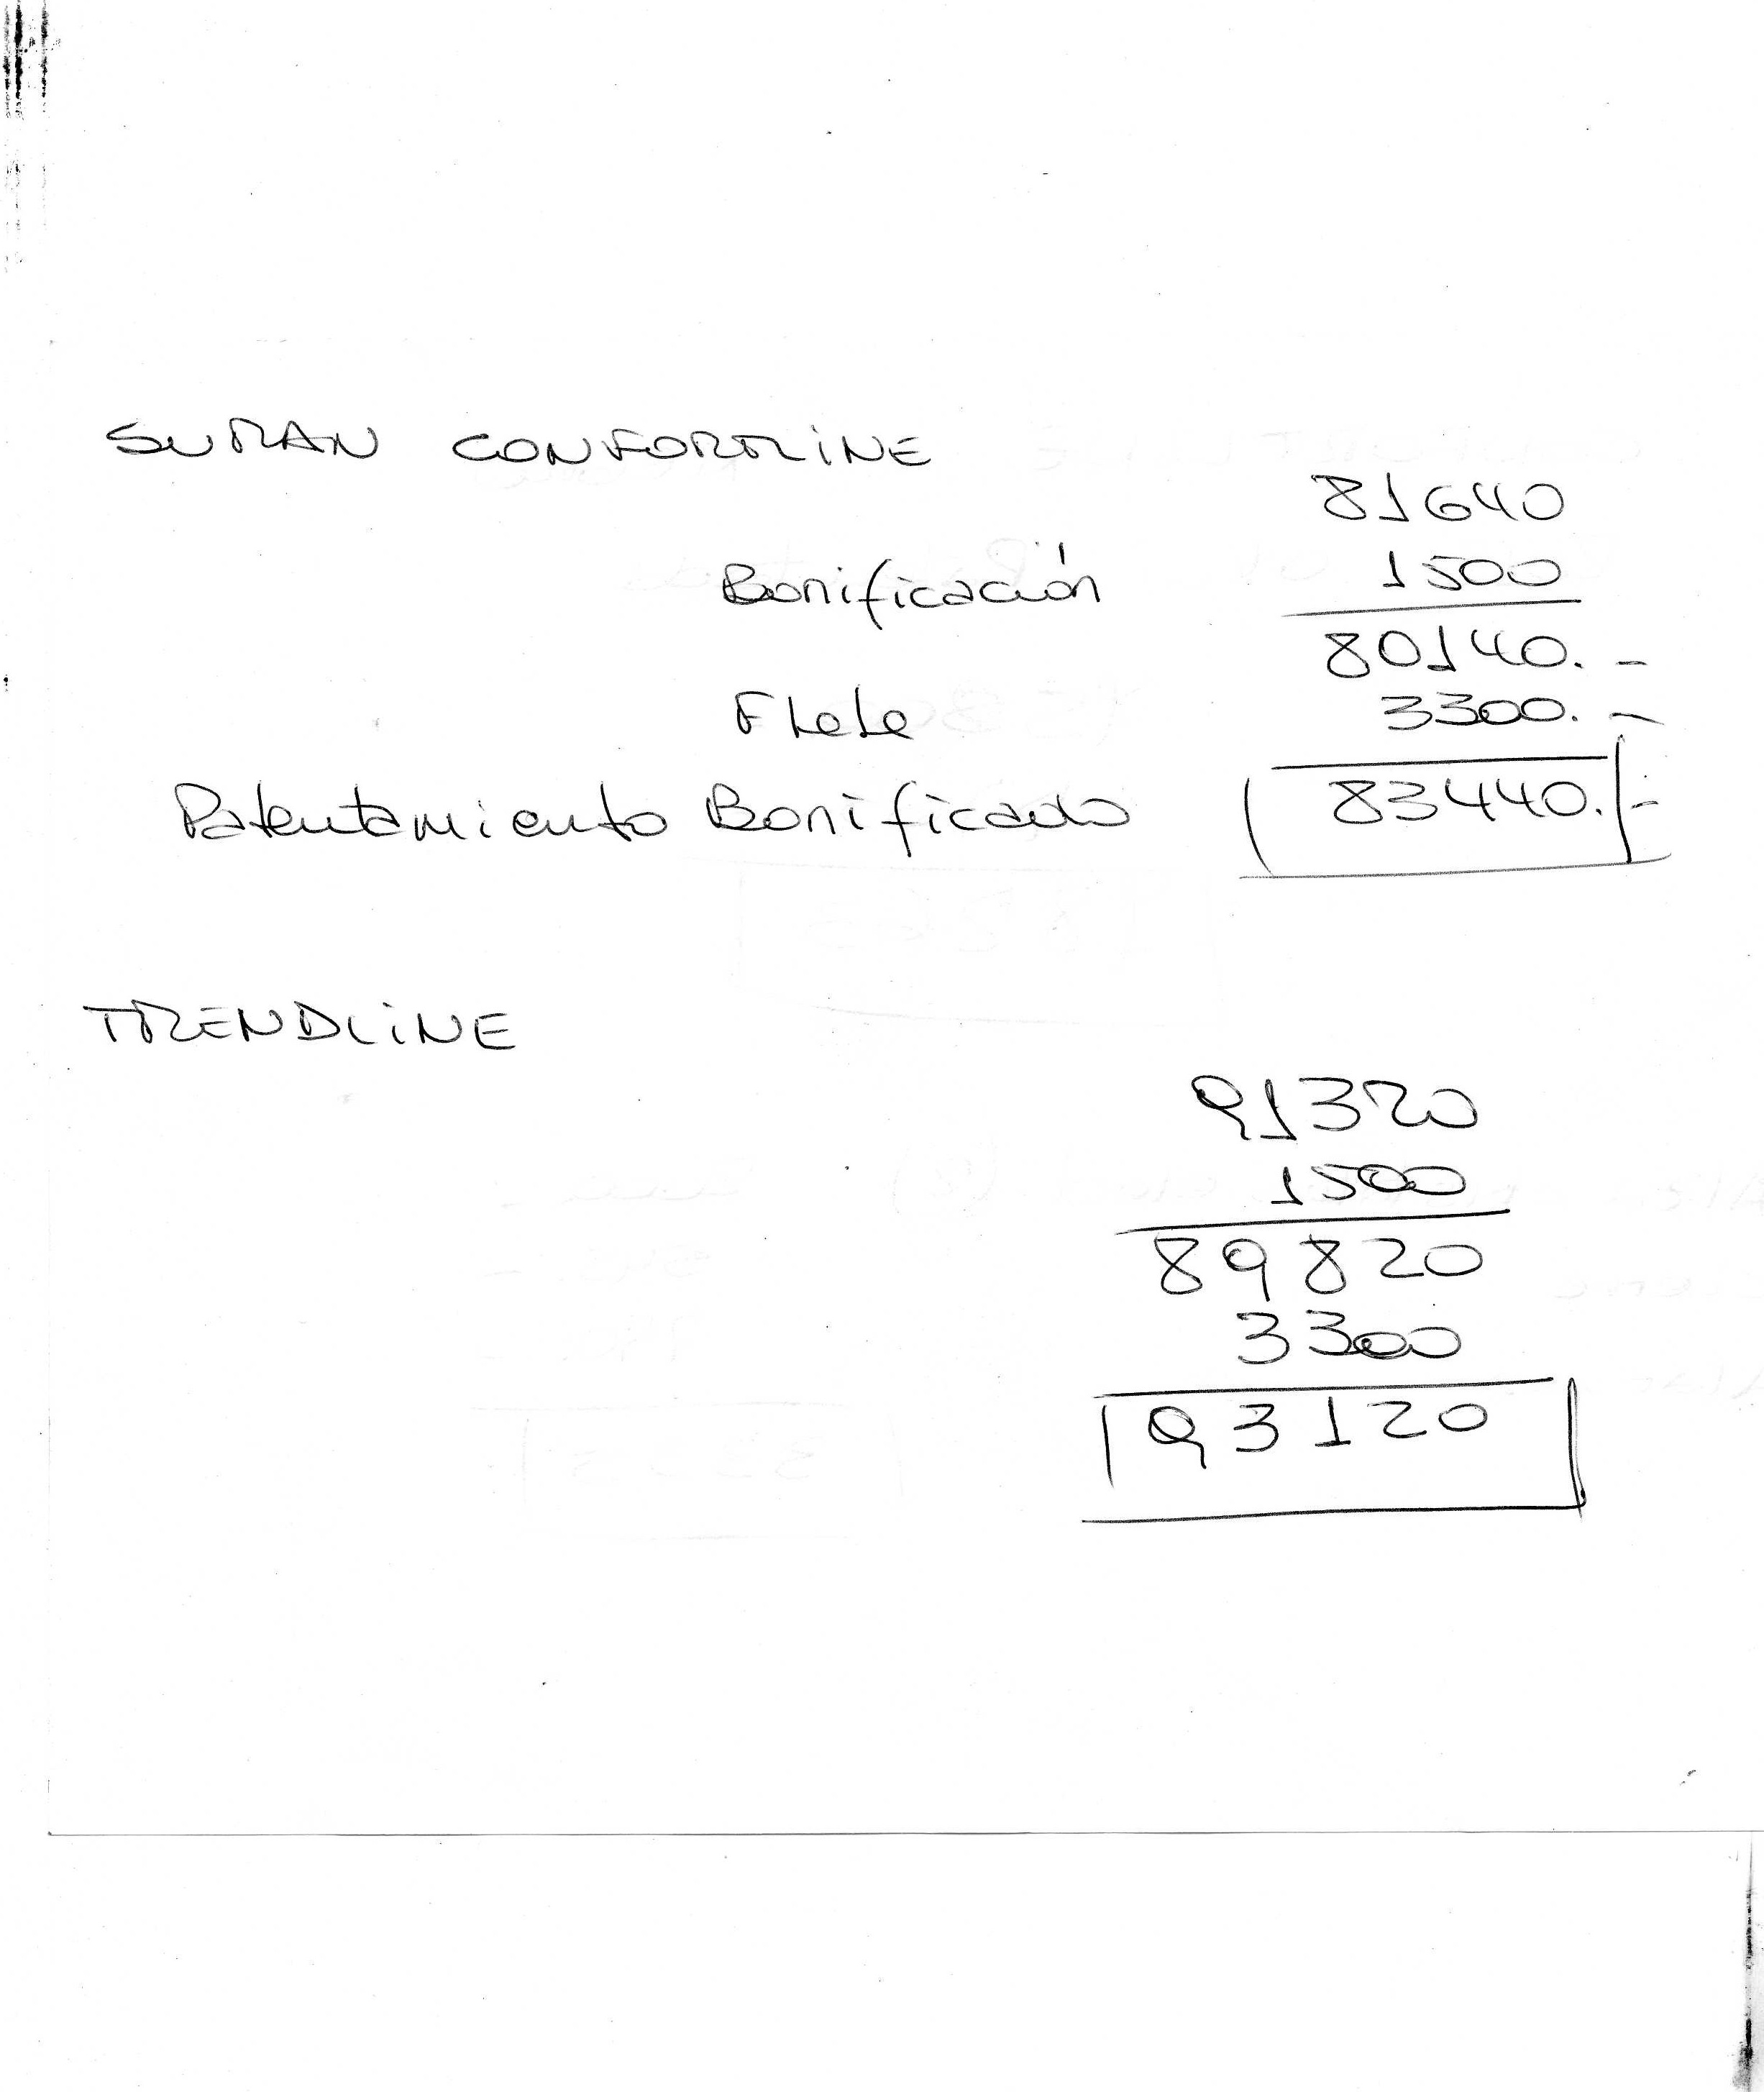 SURAN CONFORTLINE
81640
Bonificación 1500
80140.-
Flete 3300.-
Patentamiento Bonificado 83440.-
TRENDLINE
91320
1500
89820
3300
93120